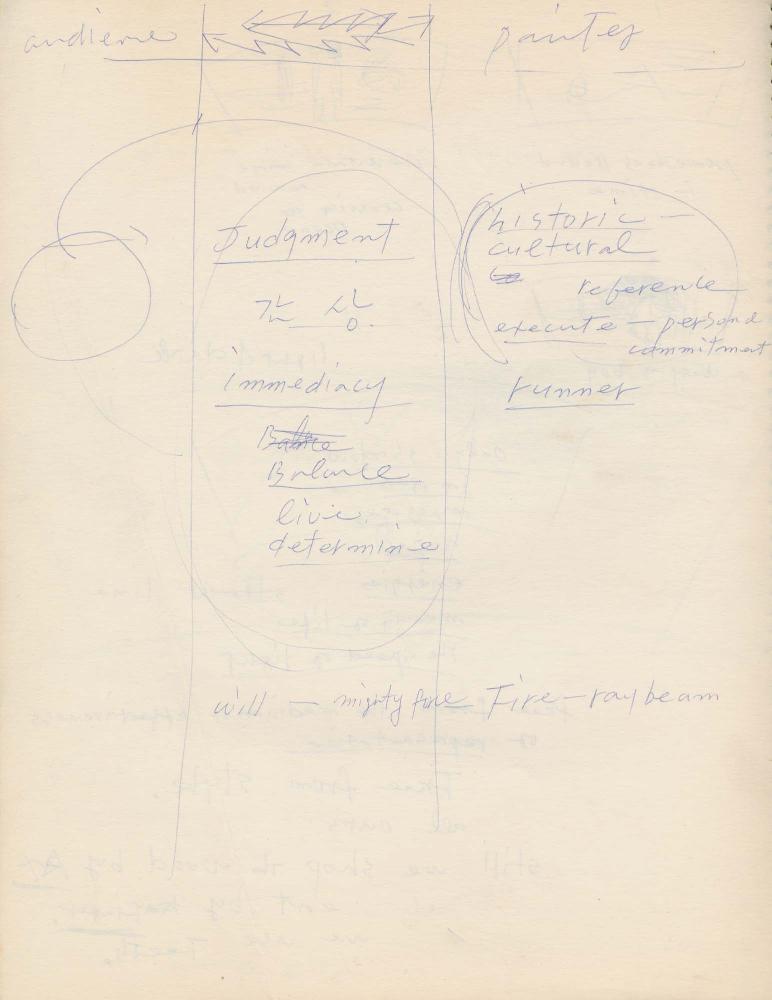 audience
painter
Judgment
감 상
immediacy
Balance
live
determine
historic —
cultural
reference
execute — personal
commitment
runner
will — mighty force Fire-ray beam